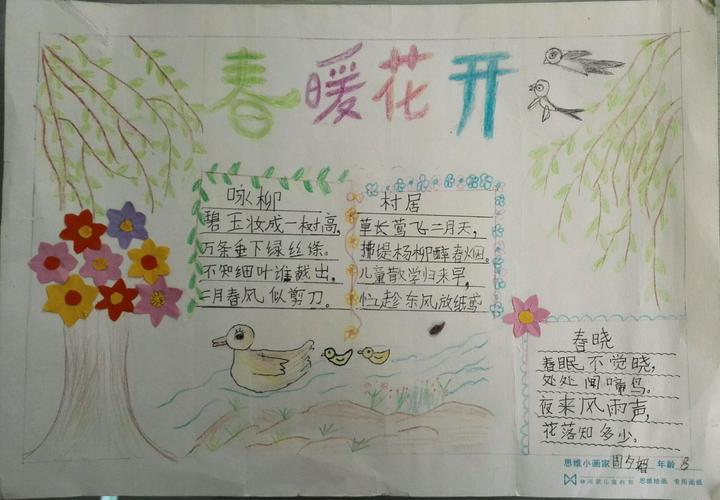 春暖花开
咏柳
碧玉妆成一树高,
万条垂下绿丝绦。
不知细叶谁裁出,
二月春风似剪刀。
村居
草长莺飞二月天,
拂堤杨柳醉春烟。
儿童散学归来早,
忙趁东风放纸鸢
春晓
春眠不觉晓,
处处闻啼鸟。
夜来风雨声,
花落知多少。
思维小画家 周夕 年龄 8
思维绘画 专用画纸